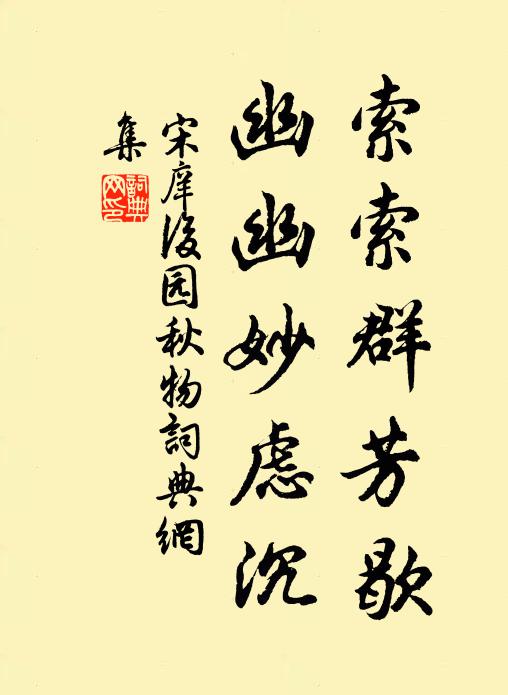 索索群芳歇
幽幽妙虑沉
宋庠後园秋物詞典網
集
詞典網印